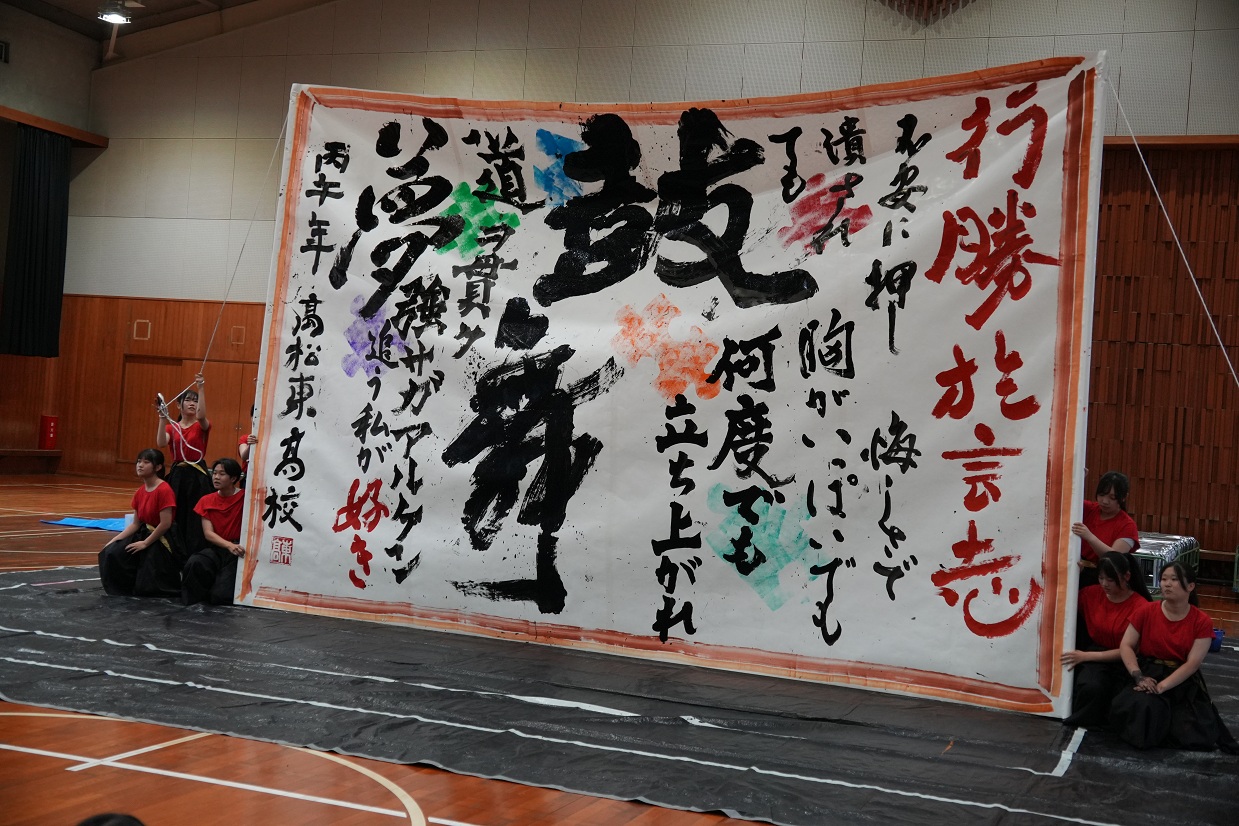 行勝於言志
不安に押し
潰され
ても
悔しさで
胸がいっぱいでも
何度でも
立ち上がれ
鼓舞
道ヲ貫ク
強サガアルケン
夢
追う私が好き
丙午年 高松東高校